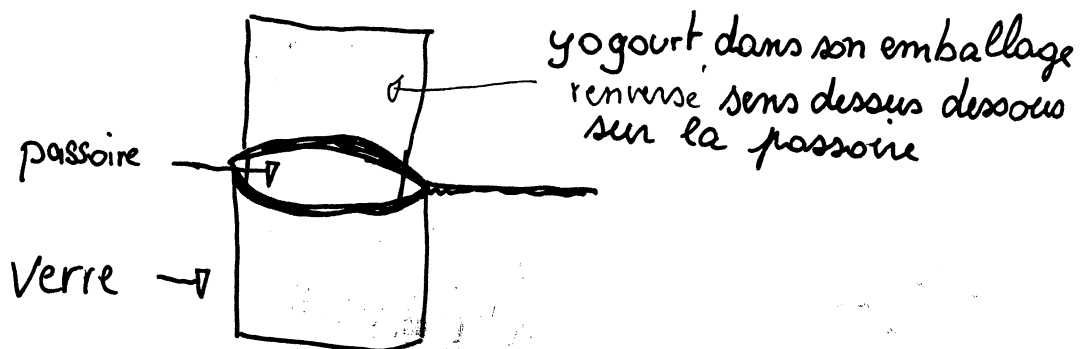 yogourt dans son emballage
renversé sens dessus dessous
sur la passoire
passoire
Verre